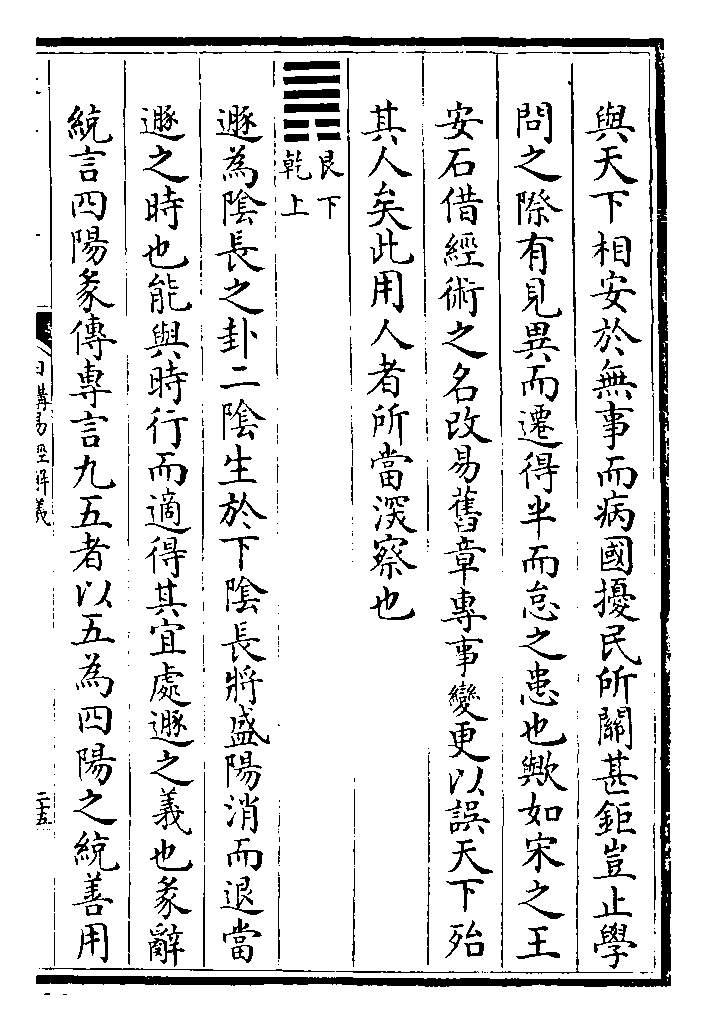 與天下相安於無事而病國擾民所關甚鉅豈止學
問之際有見異而遷得半而怠之患也歟如宋之王
安石借經術之名改易舊章專事變更以誤天下殆
其人矣此用人者所當深察也
艮下
乾上
遯為陰長之卦二陰生於下陰長將盛陽消而退當
遯之時也能與時行而適得其宜處遯之義也彖辭
統言四陽彖傳專言九五者以五為四陽之統善用
日講易經解義
二十五